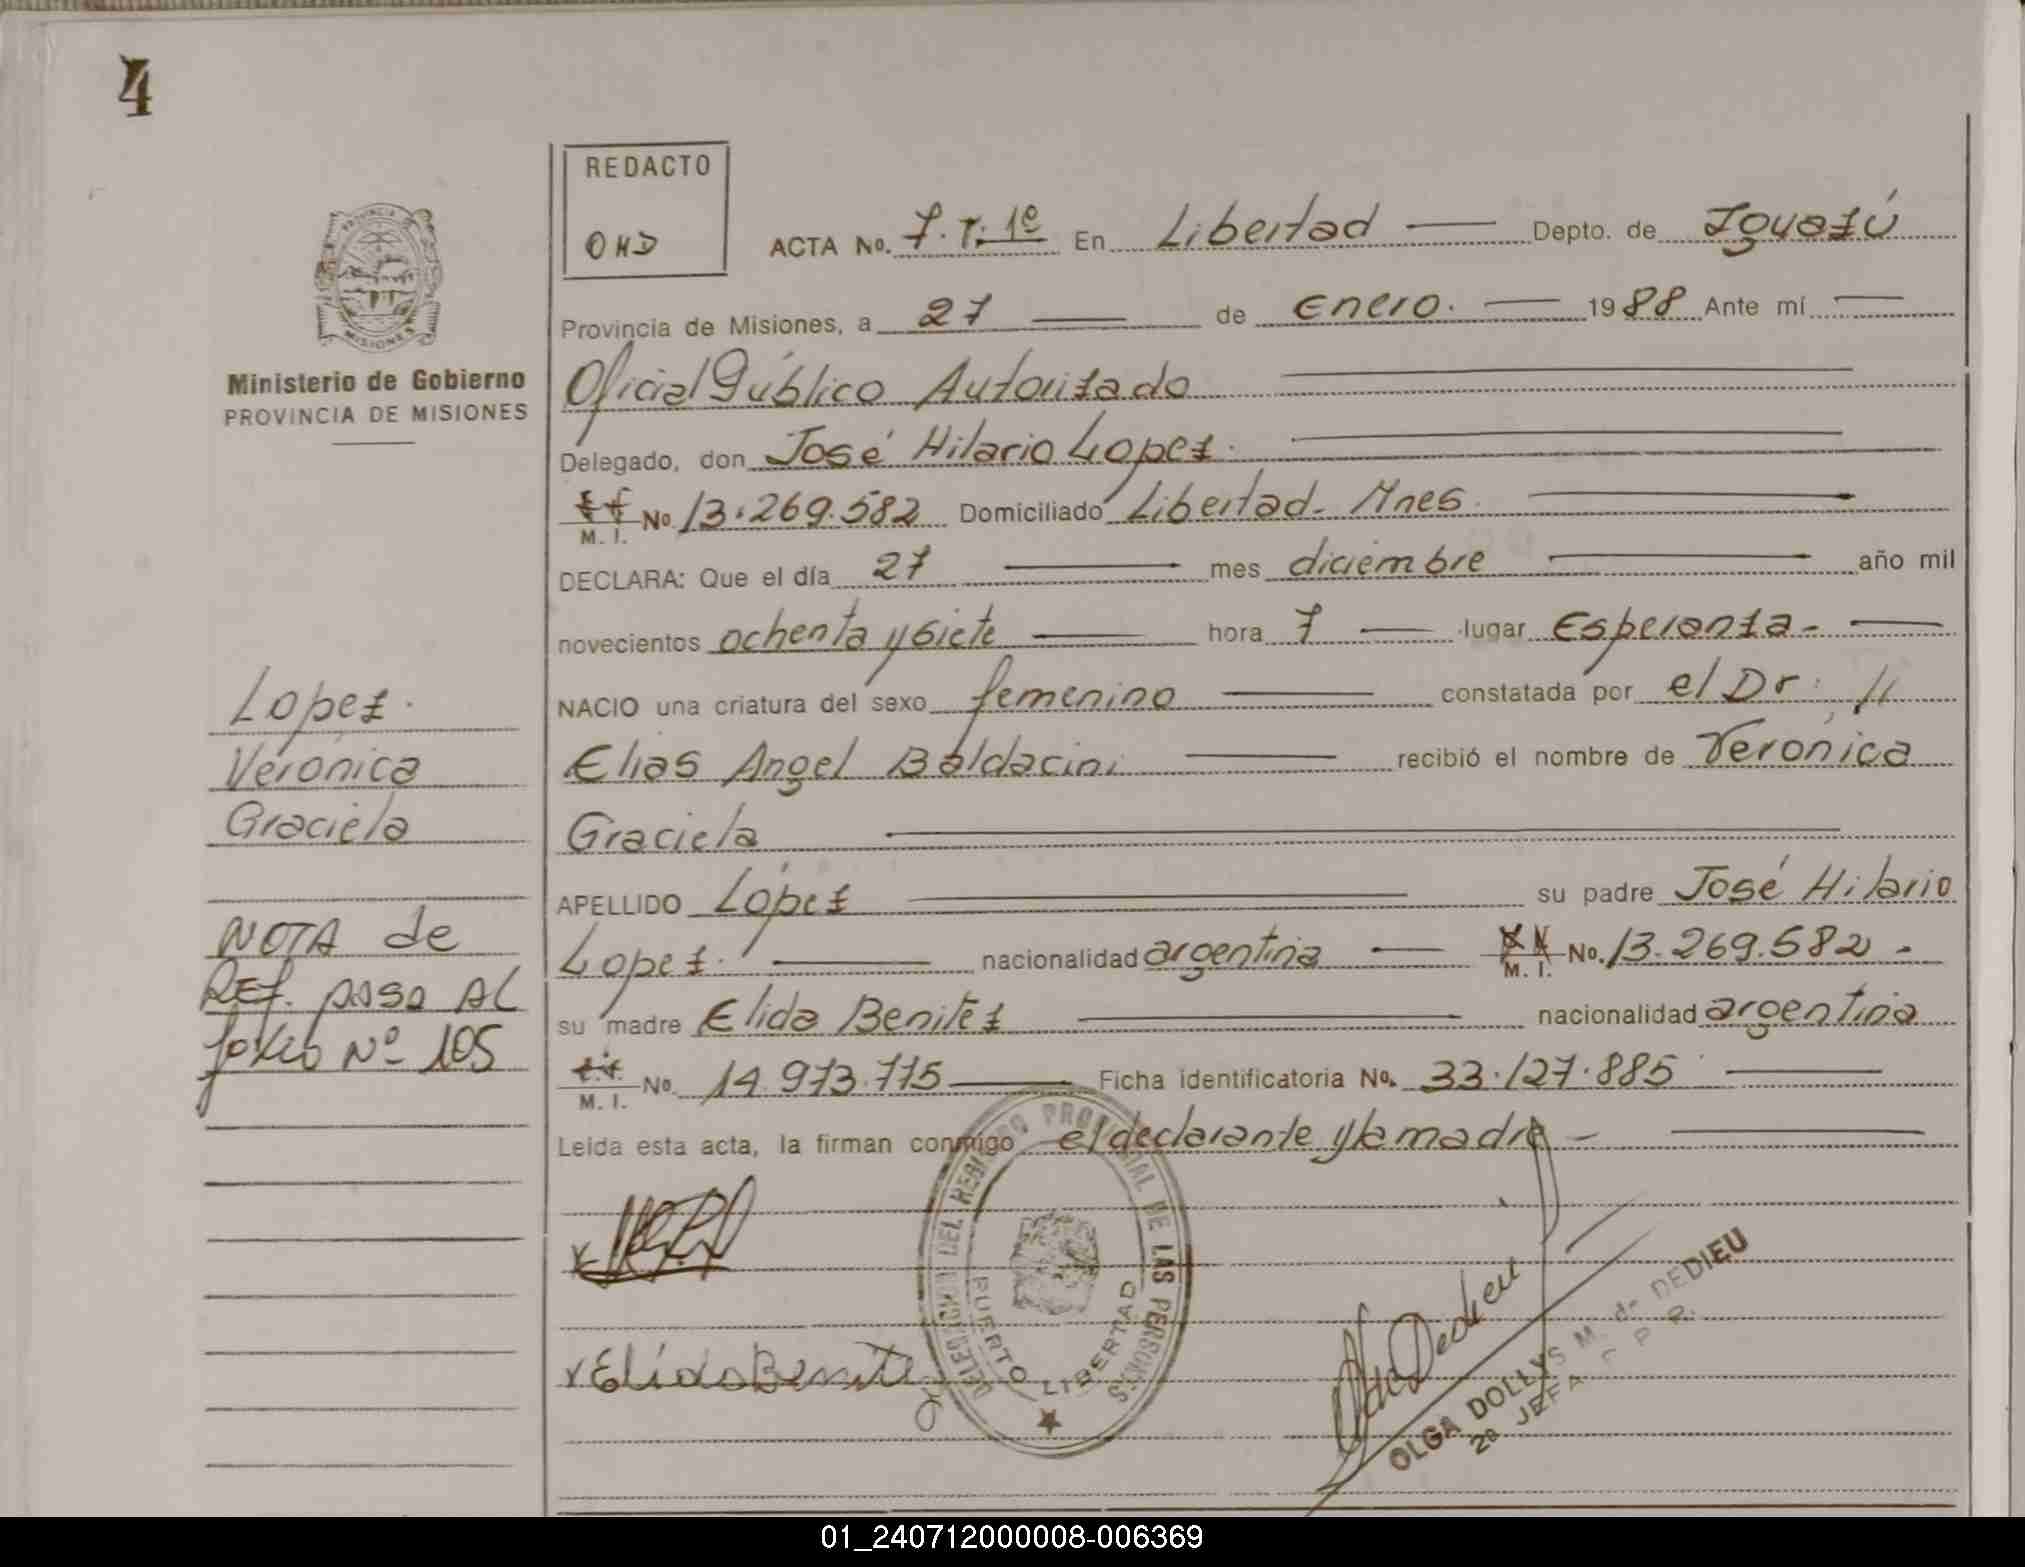 4
REDACTO
OMD
ACTA No. 7. T: 1º En Libertad Depto. de Iguazú
Provincia de Misiones, a 27 de Enero. 1988 Ante mí
Ministerio de Gobierno
PROVINCIA DE MISIONES
Oficial Público Autorizado
Delegado, don José Hilario Lopez.
M. I. No. 13.269.582 Domiciliado Libertad - Mnes.
DECLARA: Que el día 27 mes diciembre año mil
novecientos ochenta y siete hora 7 lugar Esperanza -
NACIO una criatura del sexo femenino constatada por el Dr. //
Elias Angel Baldacini recibió el nombre de Verónica
Graciela
APELLIDO López su padre José Hilario
Lopez. nacionalidad argentina M. I. No. 13.269.582 -
su madre Elida Benitez nacionalidad argentina
M. I. No. 14.973.775 Ficha identificatoria No. 33.127.885
Leída esta acta, la firman conmigo el declarante y la madre -
Lopez.
Verónica
Graciela
NOTA de
REF. pasa AL
folio Nº 105
x Elida Benitez
DELEGACION DEL REGISTRO PROVINCIAL DE LAS PERSONAS
PUERTO LIBERTAD
Olga Dedieu
OLGA DOLLYS M. de DEDIEU
2a JEFA R. P. P.
PROVINCIA DE
MISIONES
01_240712000008-006369